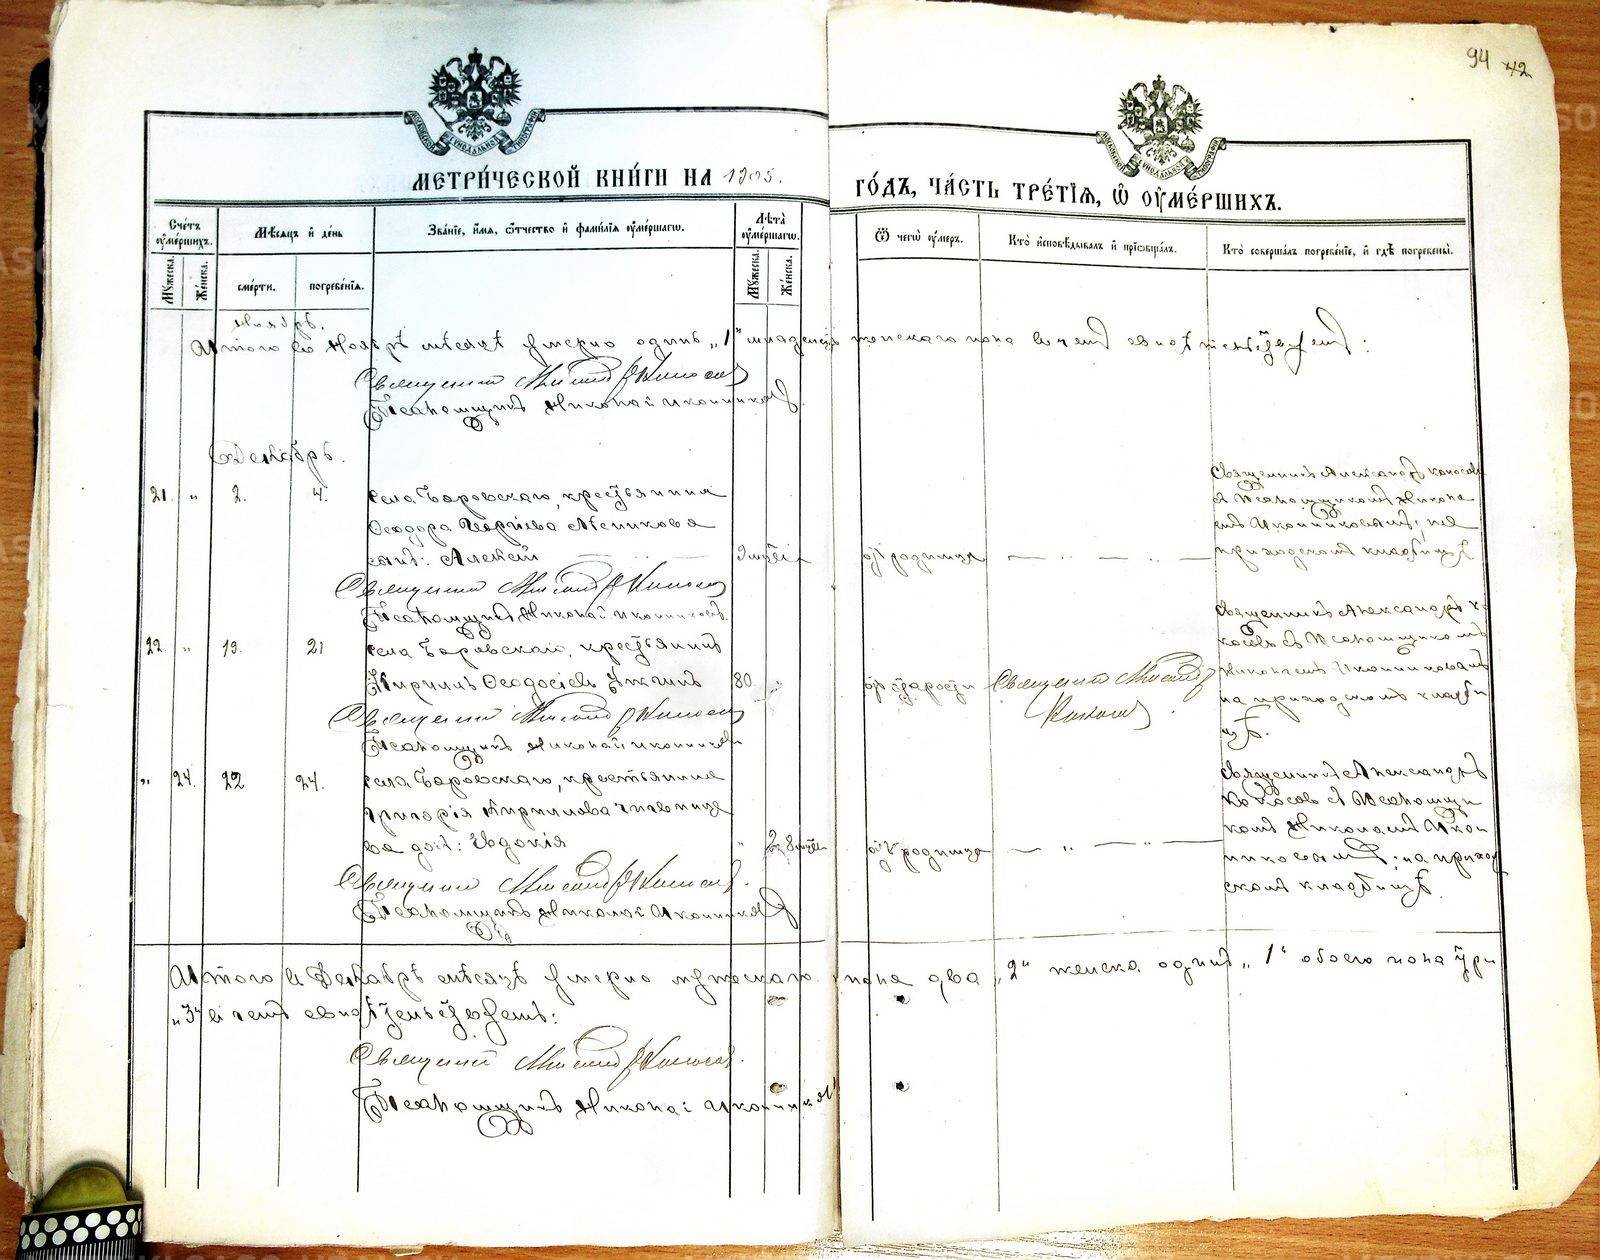 94 42
МЕТРИ́ЧЕСКОЙ КНИ́ГИ НА 1905.
ГО́ДЪ, ЧА́СТЬ ТРЕ́ТІЯ, Ѡ҆ ОУ҆МЕ́РШИХЪ.
Сче́тъ оу҆ме́ршихъ.
Мѣ́сяцъ и҆ де́нь
Зва́ніе, и҆́мя, ѻ҆́тчество и҆ фами́лія оу҆ме́ршагѡ.
Лѣ́та оу҆ме́ршагѡ.
Ѿ чегѡ̀ оу҆́меръ.
Кто̀ и҆сповѣ́дывалъ и҆ прїѡбща́лъ.
Кто̀ соверша́лъ погребе́ніе, и҆ гдѣ̀ погребены̀.
Мꙋ́жеска.
Же́нска.
сме́рти.
погребе́нія.
Мꙋ́жеска.
Же́нска.
Ноябрь.
Итого въ Ноябрѣ мѣсяцѣ умерло одинъ „1" младенецъ женскаго пола въ чемъ свидѣтельствуемъ:
Священникъ
Псаломщикъ Николай Иконниковъ
Декабрь.
21. „ 2. 4.
села Боровскаго, крестьянина
Ѳеодора
сынъ: Алексѣй
9 мѣсяц
отъ родимца
Священникъ Александръ
съ Псаломщикомъ Никола
емъ Иконниковымъ, на
приходскомъ кладбищѣ
Священникъ
Псаломщикъ Николай Иконниковъ
22. „ 19. 21
села Боровскаго, крестьянинъ
Кириллъ Ѳеодосіевъ
80
отъ старости
Священникъ
Священникъ Александръ
съ Псаломщикомъ
Николаемъ Иконниковымъ
на приходскомъ кладби
щѣ.
Священникъ
Псаломщикъ Николай Иконниковъ
„ 24. 22 24.
села Боровскаго, крестьянина
Григорія Кириллова
дочь: Евдокія
2 г. 8 мѣсяц
отъ родимца
Священникъ Александръ
съ Псаломщи
комъ Николаемъ Икон
никовымъ, на приход
скомъ кладбищѣ.
Священникъ
Псаломщикъ Николай Иконниковъ
Итого въ Декабрѣ мѣсяцѣ умерло мужескаго пола два „2" женска одинъ „1" обоего пола три
„3" въ чемъ свидѣтельствуемъ:
Священникъ
Псаломщикъ Николай Иконниковъ